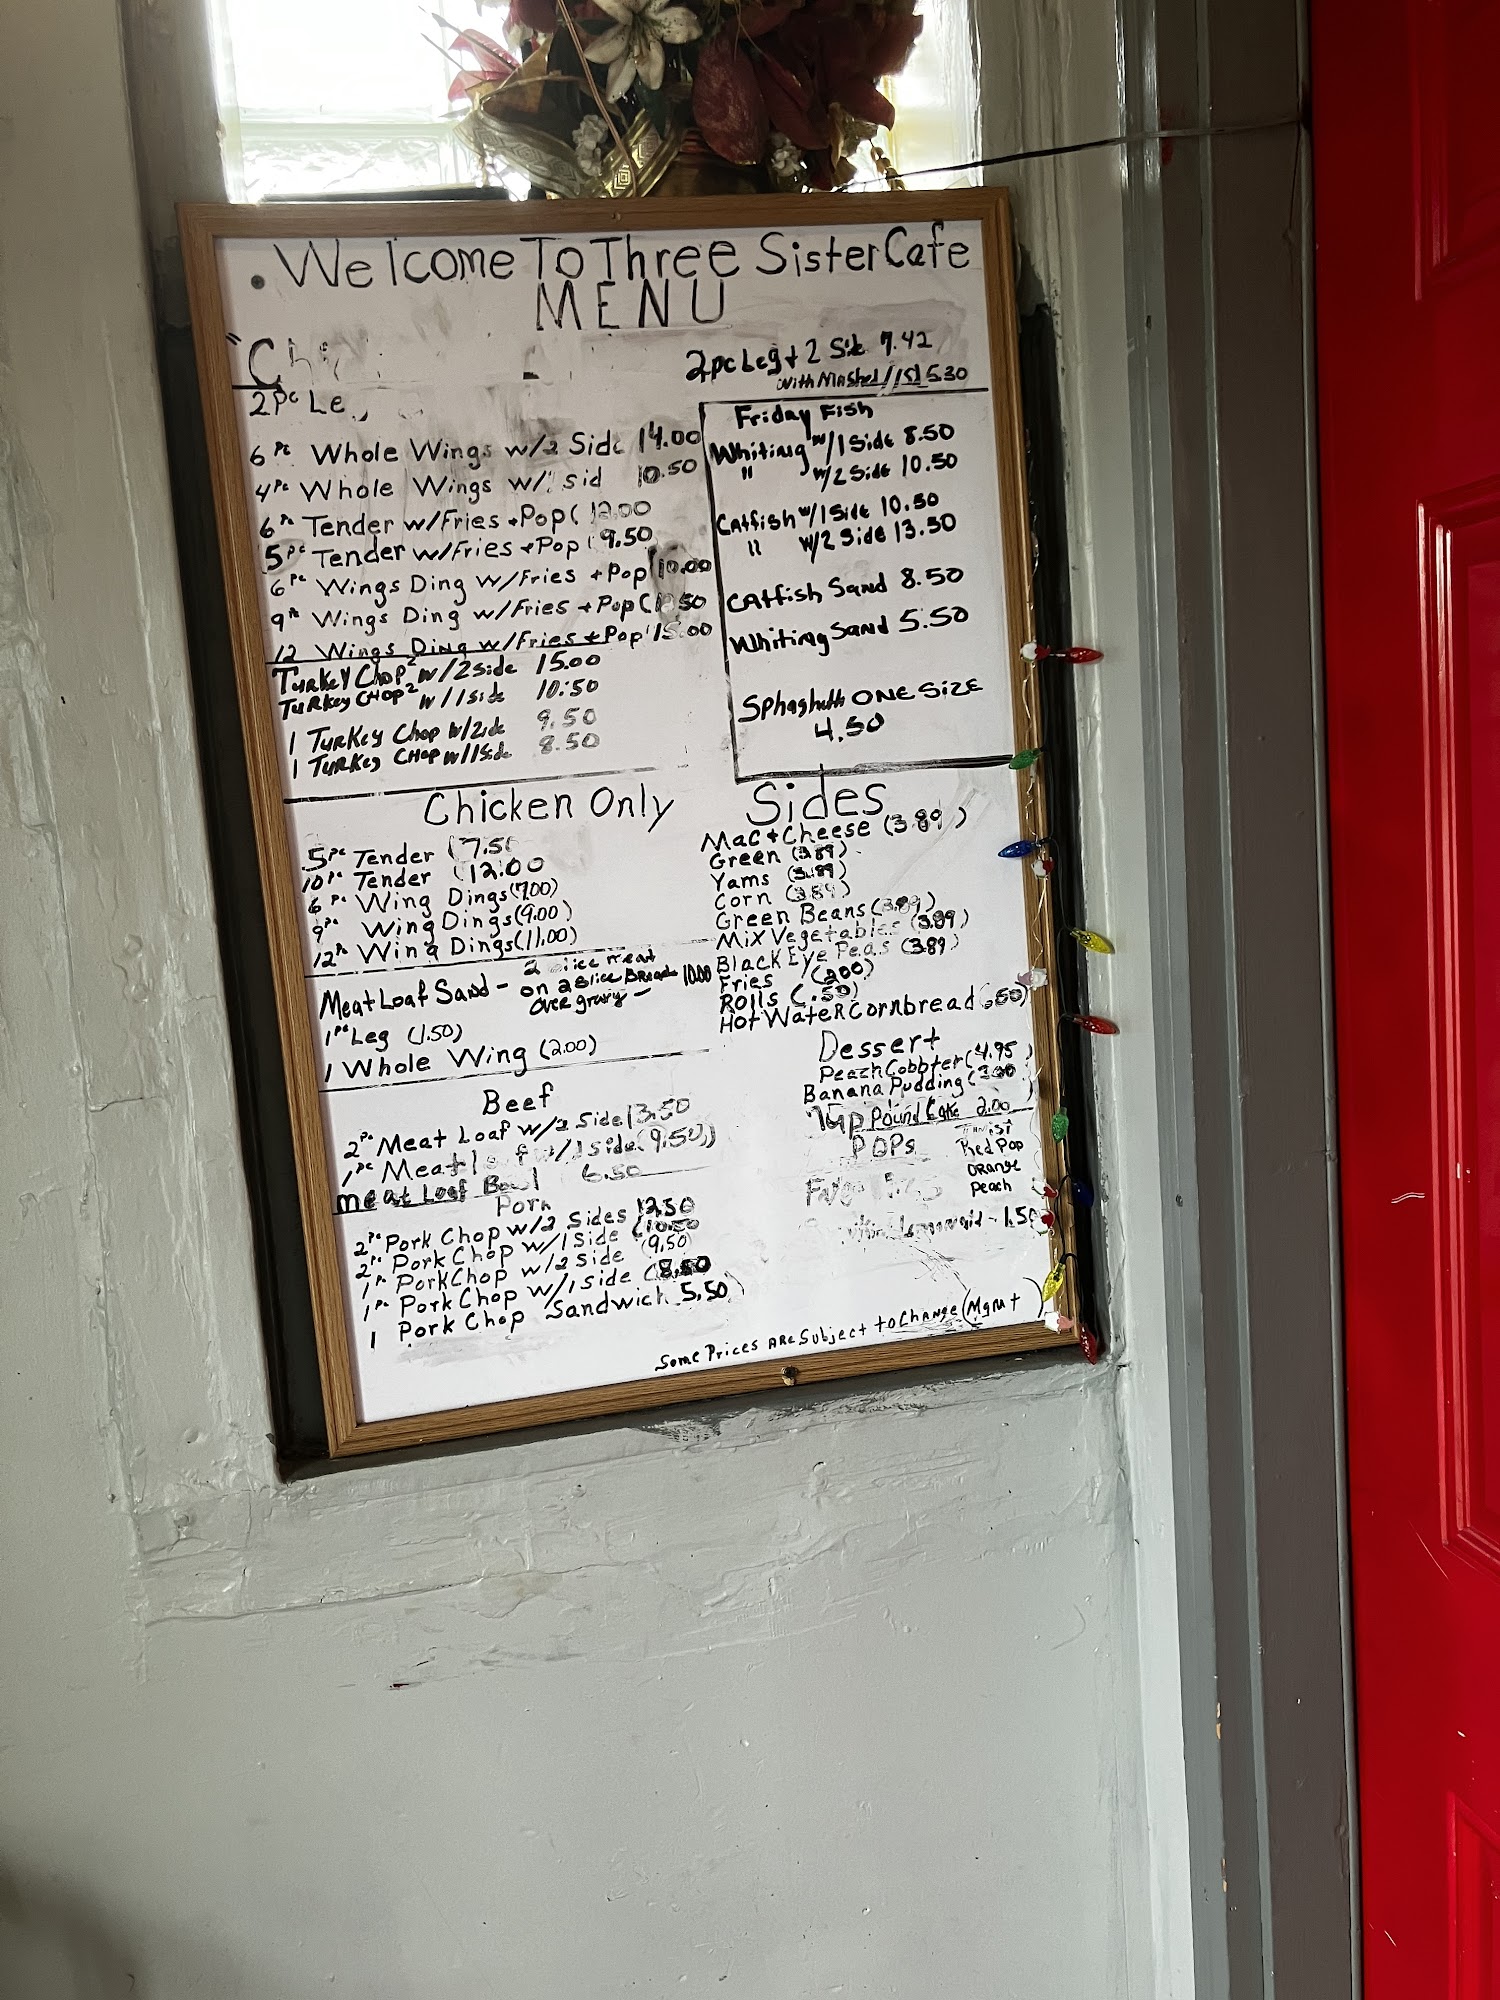 Welcome To Three Sister Cafe
MENU
2pc Leg + 2 Side 7.42
with Mashed / 1S 5.30
2pc Le
6 Pc Whole Wings w/2 Side 14.00
4Pc Whole Wings w/ Sid 10.50
6 Pc Tender w/Fries + Pop ( 12.00
5 Pc Tender w/Fries + Pop ( 9.50
6 Pc Wings Ding w/Fries + Pop 10.00
9 Pc Wings Ding w/Fries + Pop (
12 Wings Ding w/Fries + Pop 15.00
Turkey Chop 2 w/2 Side 15.00
Turkey Chop 2 w/1 Side 10.50
1 Turkey Chop w/2ide 9.50
1 Turkey Chop w/1 Side 8.50
Friday Fish
Whiting w/1 Side 8.50
" w/2 Side 10.50
Catfish w/1 Side 10.50
" w/2 Side 13.50
Catfish Sand 8.50
Whiting Sand 5.50
Sphaghutti ONE SIZE
4.50
Chicken Only
5 Pc Tender (7.50
10 Pc Tender (12.00
6 Pc Wing Dings (7.00)
9 Pc Wing Dings (9.00)
12 Pc Wing Dings (11.00)
Meat Loaf Sand - 2 Slice meat
on 2 Slice Bread 10.00
over gravy -
1 Pc Leg (1.50)
1 Whole Wing (2.00)
Beef
2 Pc Meat Loaf w/2 Side 13.50
1 Pc Meat w/1 Side (9.50)
meat Loaf Bowl 6.50
Pork
2 Pc Pork Chop w/2 Sides 12.50
2 Pc Pork Chop w/1 Side (10.50
1 Pc Pork Chop w/2 Side (9.50)
1 Pc Pork Chop w/1 Side (8.50
1 Pork Chop Sandwich 5.50
Sides
Mac + Cheese (3.89)
Green (3.89)
Yams (3.89)
Corn (3.89)
Green Beans (3.89)
Mix Vegetables (3.89)
Black Eye Peas (3.89)
Fries (2.00)
Rolls (.50)
Hot Water Cornbread .50)
Dessert
Peach Cobbter (4.95)
Banana Pudding (3.00)
7up Pound Cake 2.00
POPs
Red Pop
Orange
Peach
- 1.50
Some Prices Are Subject to Change (Mgmt